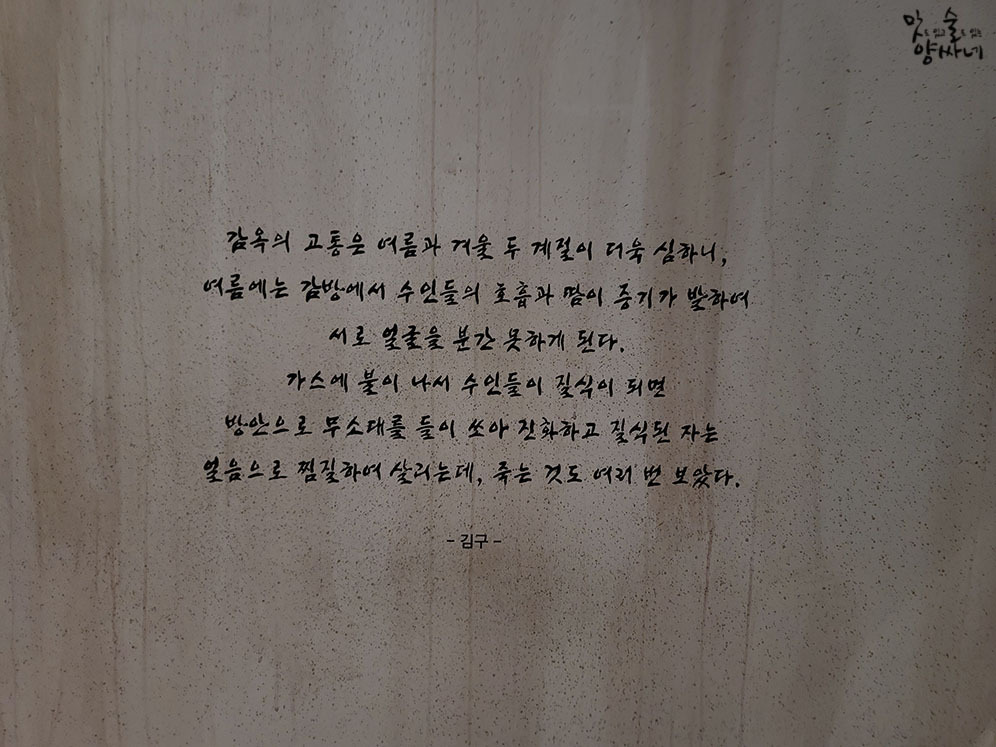 맛도 있고 술도 있는
양싸네
감옥의 고통은 여름과 겨울 두 계절이 더욱 심하니,
여름에는 감방에서 수인들의 호흡과 땀이 증기가 발하여
서로 얼굴을 분간 못하게 된다.
가스에 불이 나서 수인들이 질식이 되면
방안으로 무소대를 들이 쏘아 진화하고 질식된 자는
얼음으로 찜질하여 살리는데, 죽는 것도 여러 번 보았다.
- 김구 -